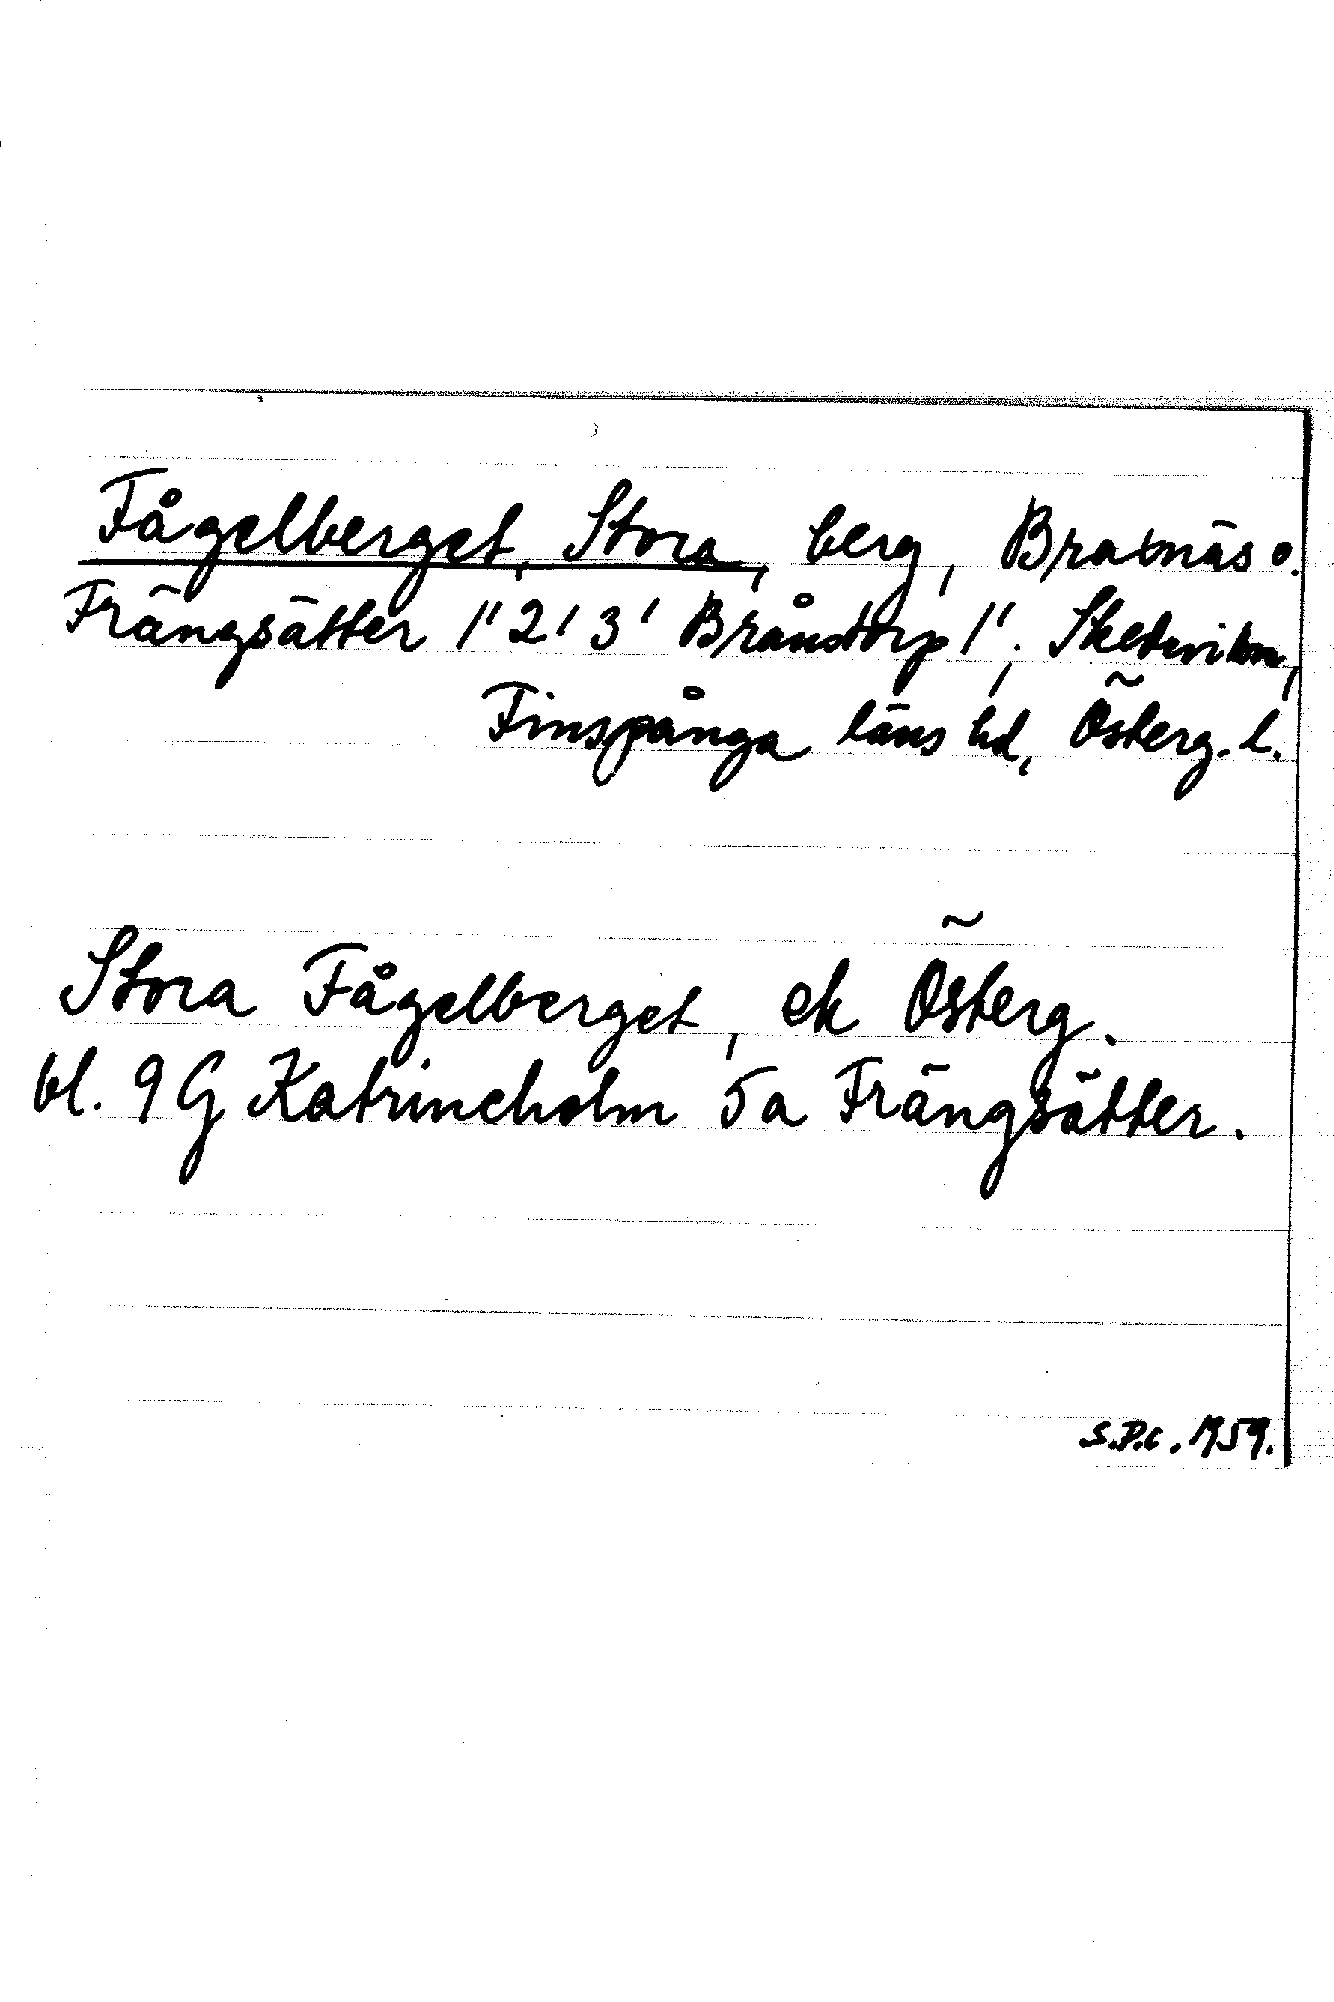 Fågelberget, Stora, berg, Bratnäs o.
Frängsätter 1" 2' 3' Bråstorp 1", Skedevi sn,
Finspånga läns hd, Österg. l.
Stora Fågelberget, ek Österg.
bl. 9 G Katrineholm 5a Frängsätter.
S.P.c. 1959.